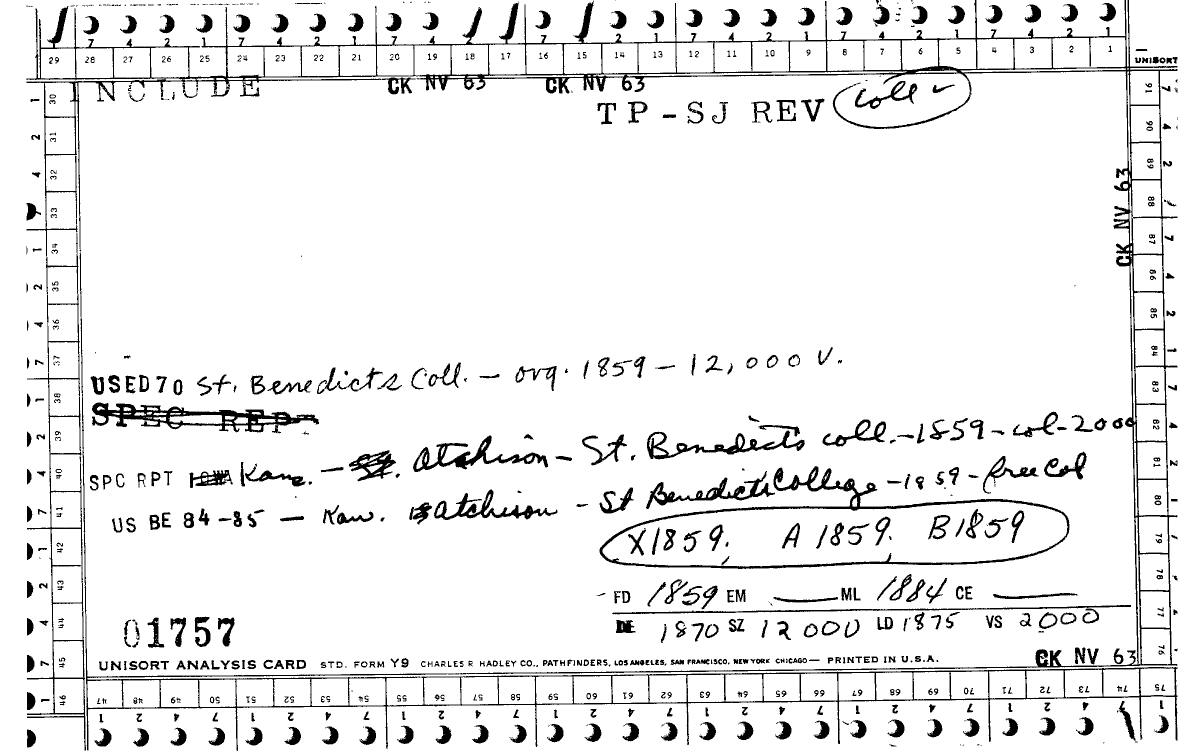 7 4 2 1 7 4 2 1 7 4 2 1 7 4 2 1 7 4 2 1 7 4 2 1
29 28 27 26 25 24 23 22 21 20 19 18 17 16 15 14 13 12 11 10 9 8 7 6 5 4 3 2 1
UNISORT
INCLUDE CK NV 63 CK NV 63
TP-SJ REV Coll ✓
CK NV 63
USED70 St. Benedicts Coll. — org. 1859 — 12,000 V.
SPEC REPT
SPC RPT Kans. — Atchison — St. Benedict's coll. — 1859 — col — 2000
US BE 84-85 — Kan. Atchison — St Benedict's College — 1859 — free Col
X1859, A 1859, B1859
FD 1859 EM — ML 1884 CE —
DE 1870 SZ 12000 LD 1875 VS 2000
01757
UNISORT ANALYSIS CARD STD. FORM Y9 CHARLES R HADLEY CO., PATHFINDERS, LOS ANGELES, SAN FRANCISCO, NEW YORK CHICAGO — PRINTED IN U.S.A.
CK NV 63
30 31 32 33 34 35 36 37 38 39 40 41 42 43 44 45 46
47 48 49 50 51 52 53 54 55 56 57 58 59 60 61 62 63 64 65 66 67 68 69 70 71 72 73 74 75
76 77 78 79 80 81 82 83 84 85 86 87 88 89 90 91